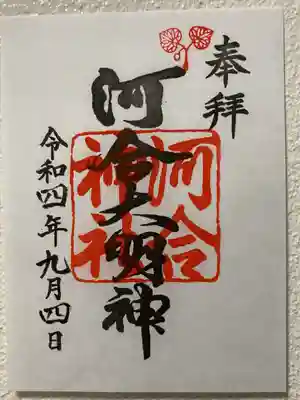 奉拝
河合大明神
河合神社
令和四年九月四日